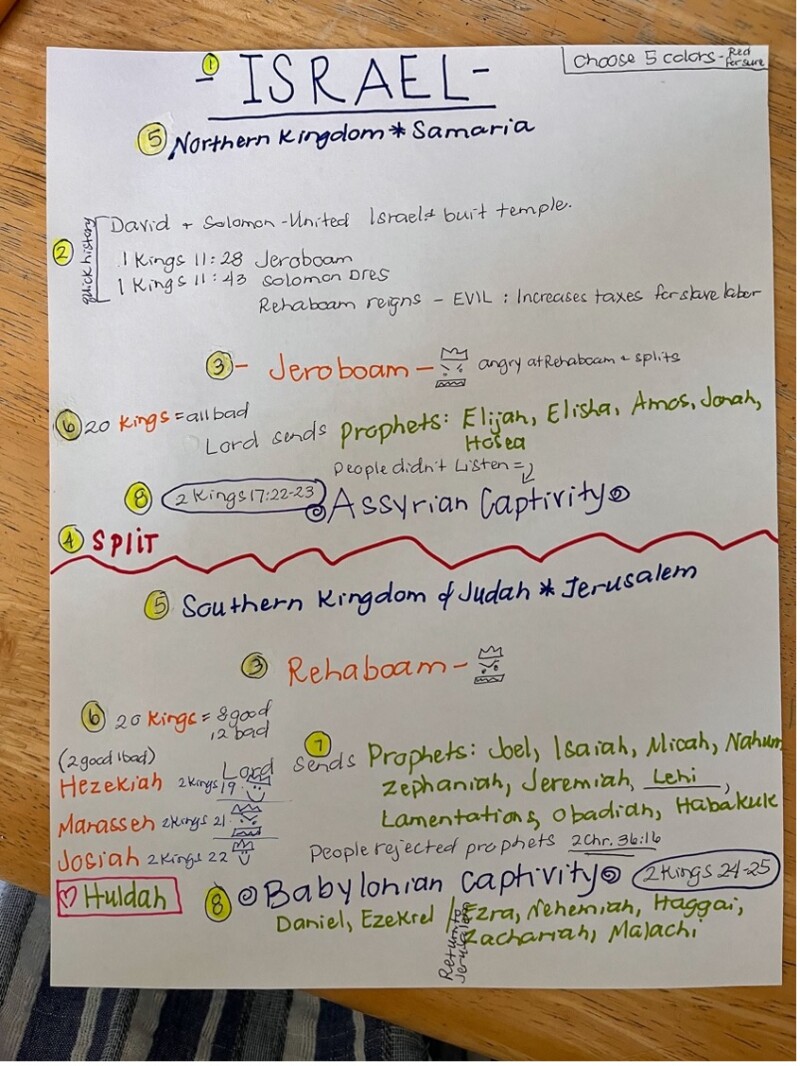 Choose 5 colors - Red for sure
① - ISRAEL -
⑤ Northern Kingdom * Samaria
② quick history
David + Solomon - United Israel & buit temple.
1 Kings 11:28 Jeroboam
1 Kings 11:43 Solomon Dies
Rehaboam reigns - EVIL : Increases taxes for slave labor
③ - Jeroboam - angry at Rehaboam + splits
⑥ 20 Kings = all bad
Lord sends Prophets: Elijah, Elisha, Amos, Jonah,
Hosea
People didn't Listen =
⑧ 2 Kings 17:22-23 Assyrian Captivity
④ SPLIT
⑤ Southern Kingdom of Judah * Jerusalem
③ Rehaboam -
⑥ 20 Kings = 8 good
12 bad
(2 good 1 bad)
⑦ Lord sends Prophets: Joel, Isaiah, Micah, Nahum
Zephaniah, Jeremiah, Lehi,
Lamentations, Obadiah, Habakuk
Hezekiah 2 Kings 19
Manasseh 2 Kings 21
Josiah 2 Kings 22
People rejected prophets 2 Chr. 36:16
♡ Huldah
⑧ Babylonian Captivity 2 Kings 24-25
Daniel, Ezekiel / Return to Jerusalem Ezra, Nehemiah, Haggai,
Zachariah, Malachi